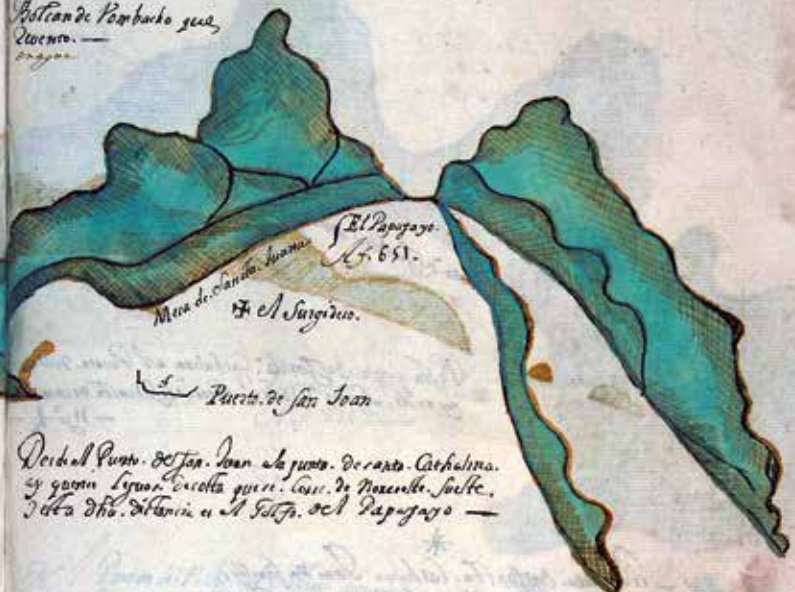 Bolcan de Bombacho que
El Papagayo.
Af. 651.
Mesa de Santa Juana
El Surgidero.
Puerto. de San Joan
Desde el Punto. de San. Joan a la punta. de santa. Cathalina.
ay quense leguas de costa que se. Corre. de Noroeste. Sueste.
y esta dha. distancia es el Golfo. del Papagayo —